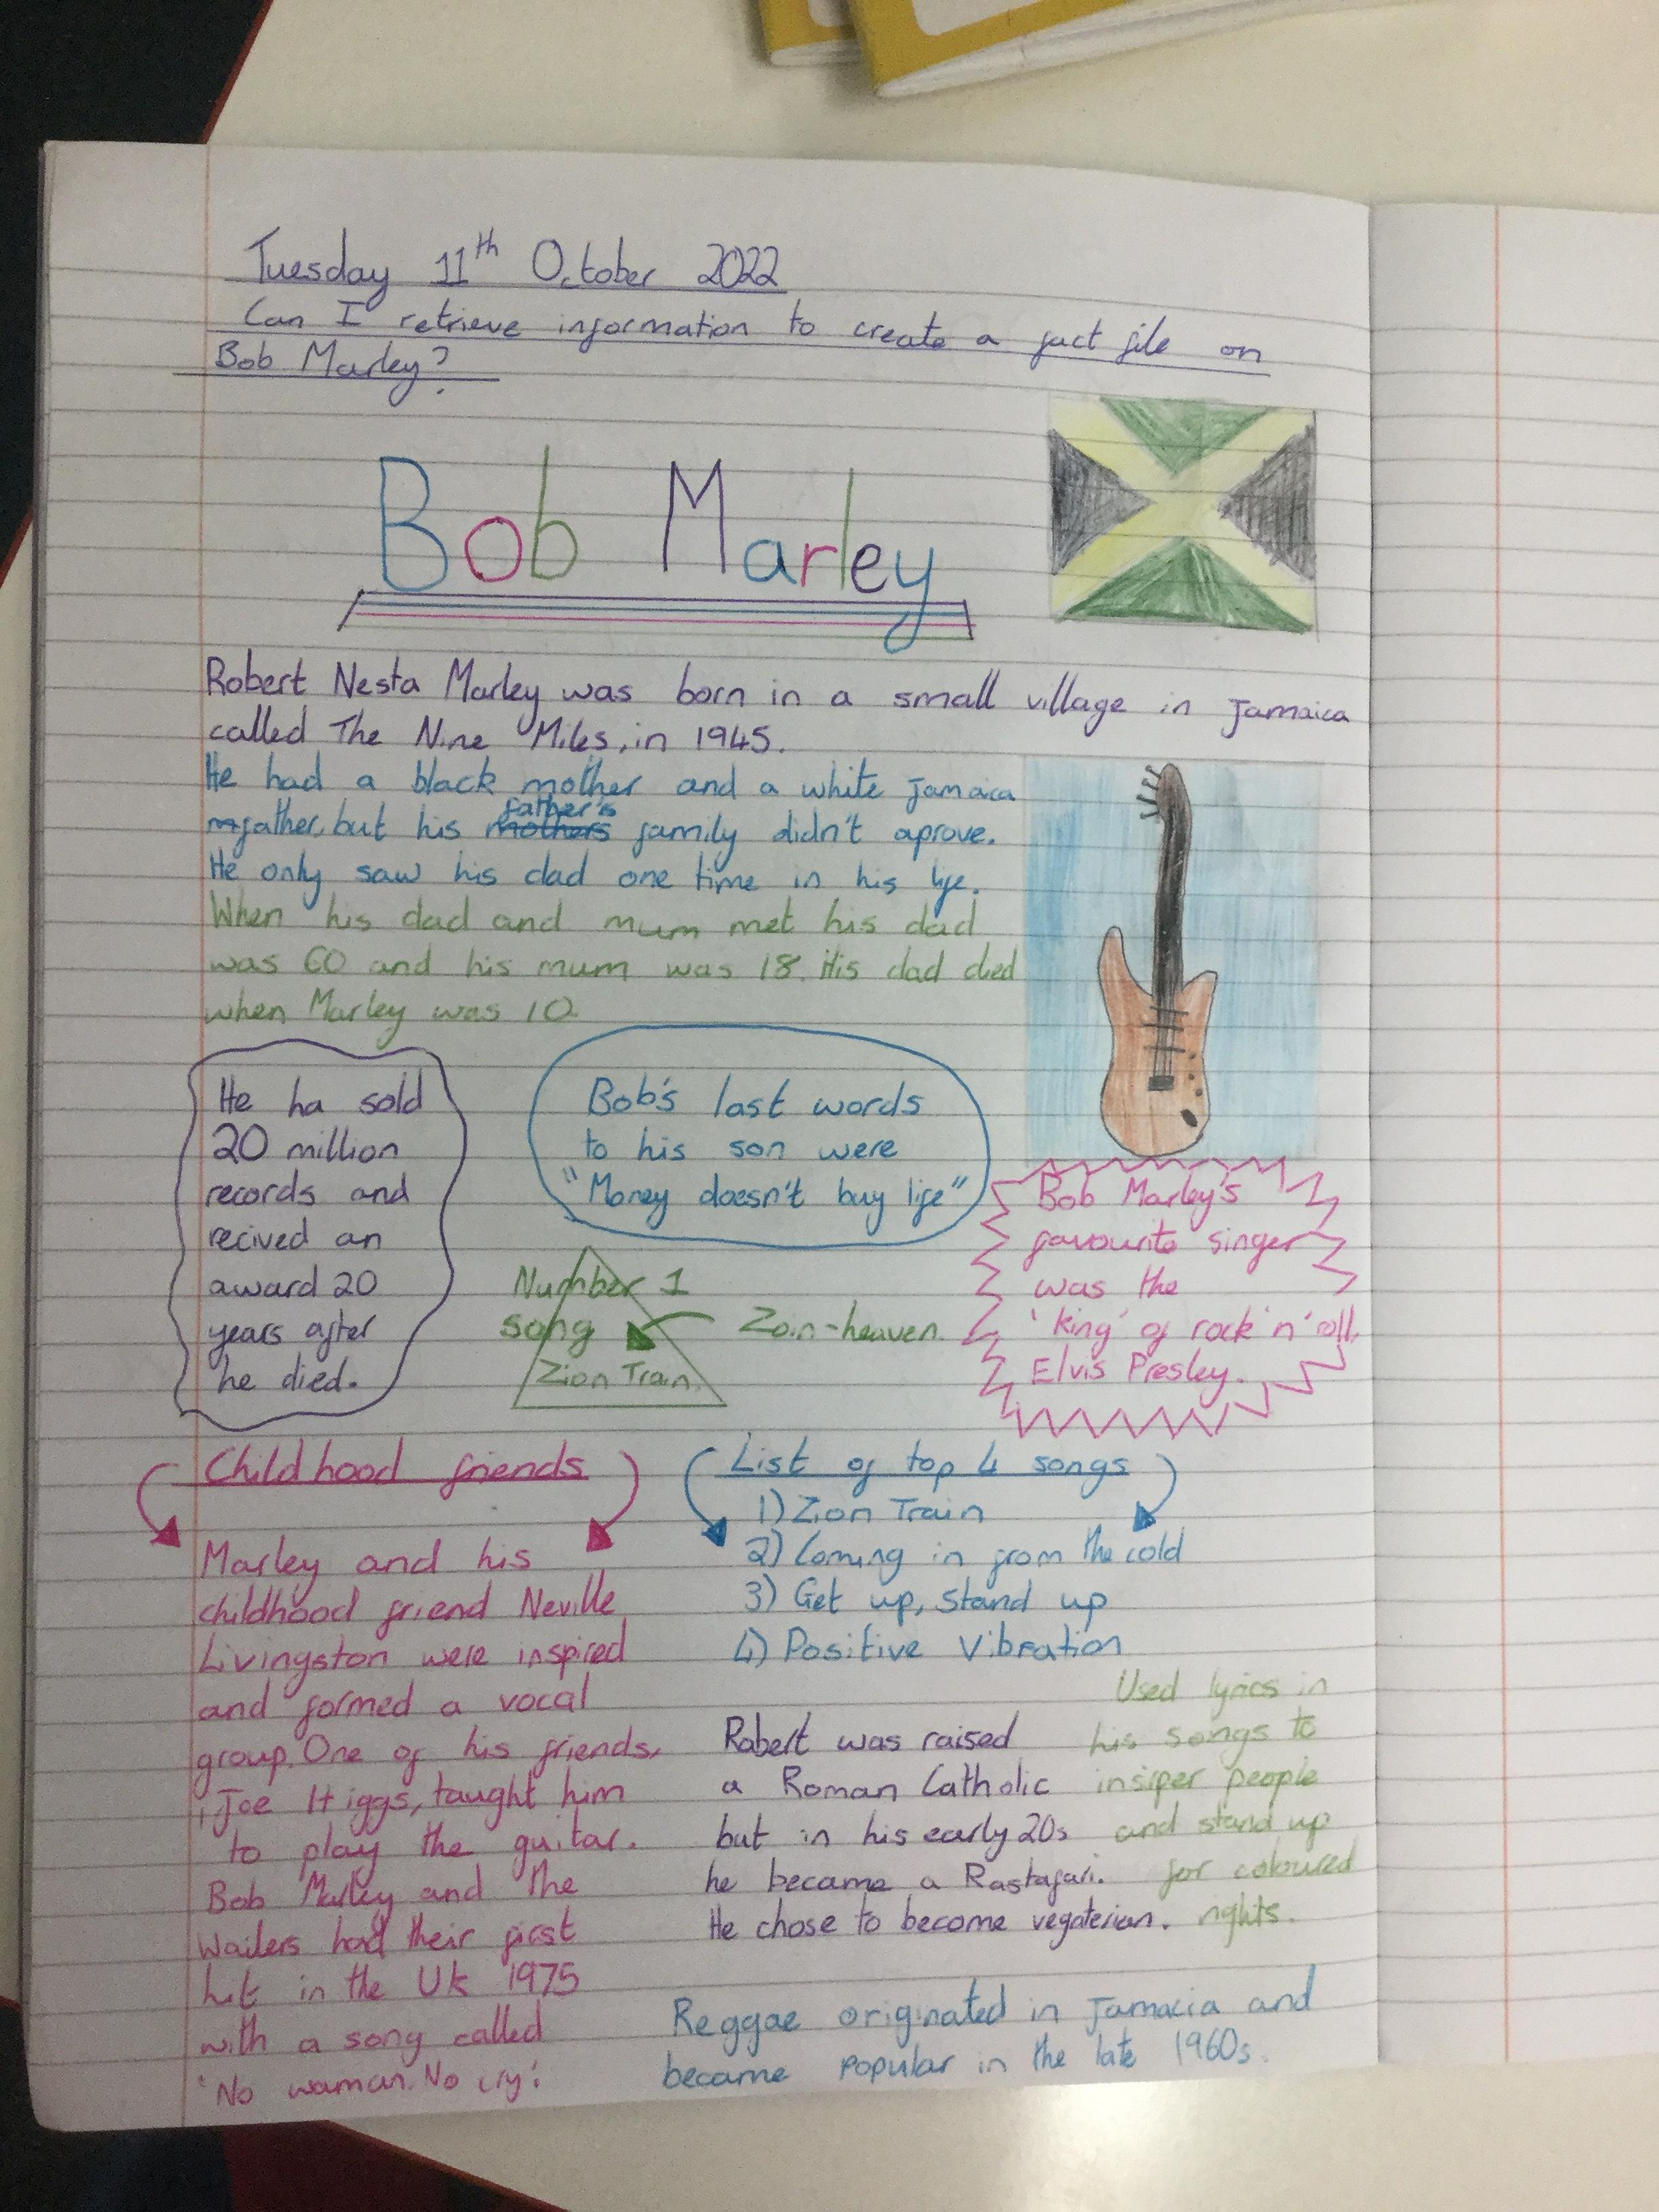 Tuesday 11th October 2022
Can I retrieve information to create a fact file on
Bob Marley?
Bob Marley
Robert Nesta Marley was born in a small village in Jamaica
called The Nine Miles, in 1945.
He had a black mother and a white Jamaica
father, but his mothers father's family didn't aprove.
He only saw his dad one time in his life.
When his dad and mum met his dad
was 60 and his mum was 18. His dad died
when Marley was 10.
He ha sold
20 million
records and
recived an
award 20
years after
he died.
Bob's last words
to his son were
"Money doesn't buy life"
Number 1
song
Zion Train
Zoin-heaven.
Bob Marley's
favourite singer
was the
'king' of rock'n'roll,
Elvis Presley.
Childhood friends
Marley and his
childhood friend Neville
Livingston were inspired
and formed a vocal
group. One of his friends,
Joe Higgs, taught him
to play the guitar.
Bob Marley and the
Wailers had their first
hit in the UK 1975
with a song called
'No waman. No cry'.
List of top 4 songs
1) Zion Train
2) Coming in from the cold
3) Get up, Stand up
4) Positive Vibration
Robert was raised
a Roman Catholic
but in his early 20s
he became a Rastafari.
He chose to become vegaterian.
Used lyrics in
his songs to
insiper people
and stand up
for coloured
rights.
Reggae originated in Jamacia and
became popular in the late 1960s.